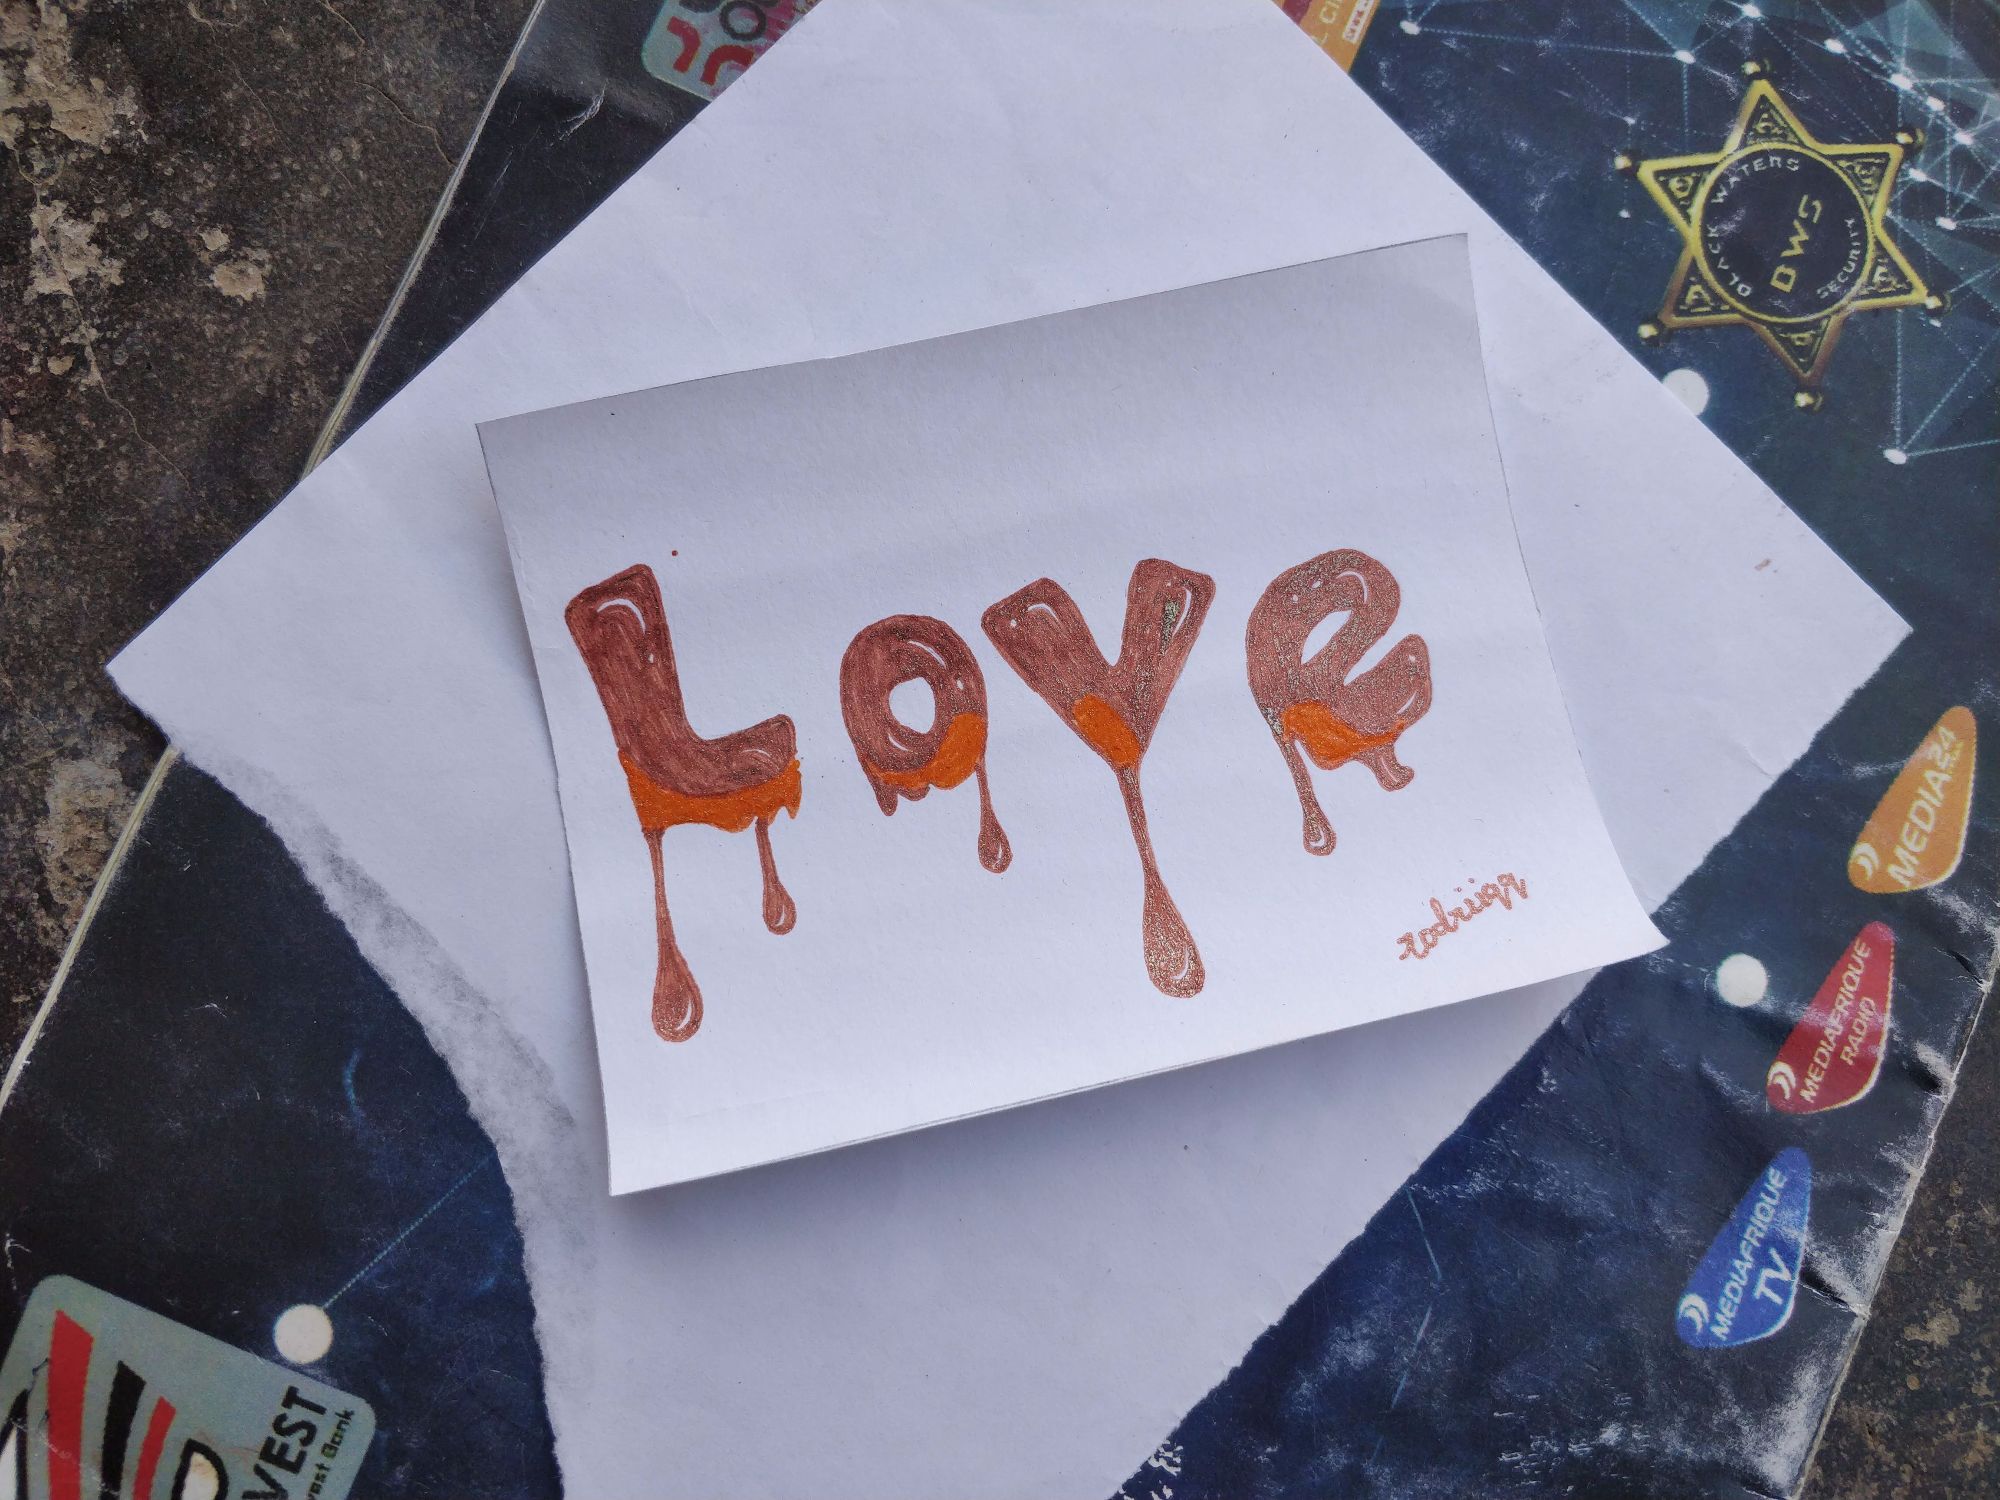 Love
DLACK WATERS
DWS
SECURITY
MEDIA24
MEDIAFRIQUE
RADIO
MEDIAFRIQUE
TV
VEST
vest Bank